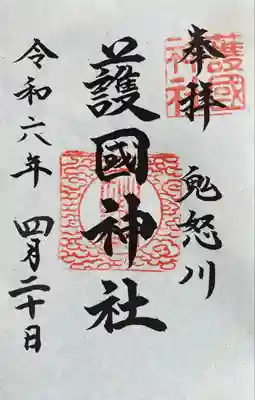 奉拝
鬼怒川
護國神社
令和六年 四月二十日
護國
神社